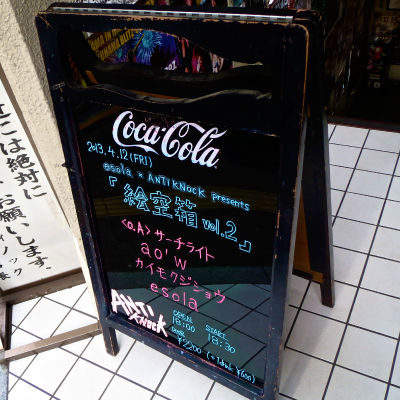 Coca-Cola
2013.4.12(FRI)
esola × ANTIKNOCK presents
「絵空箱 vol.2」
<O.A>サーチライト
ao'W
カイモクジジョウ
esola
ANTI
KNOCK
OPEN START
18:00 18:30
ここは絶対に
お願いします。